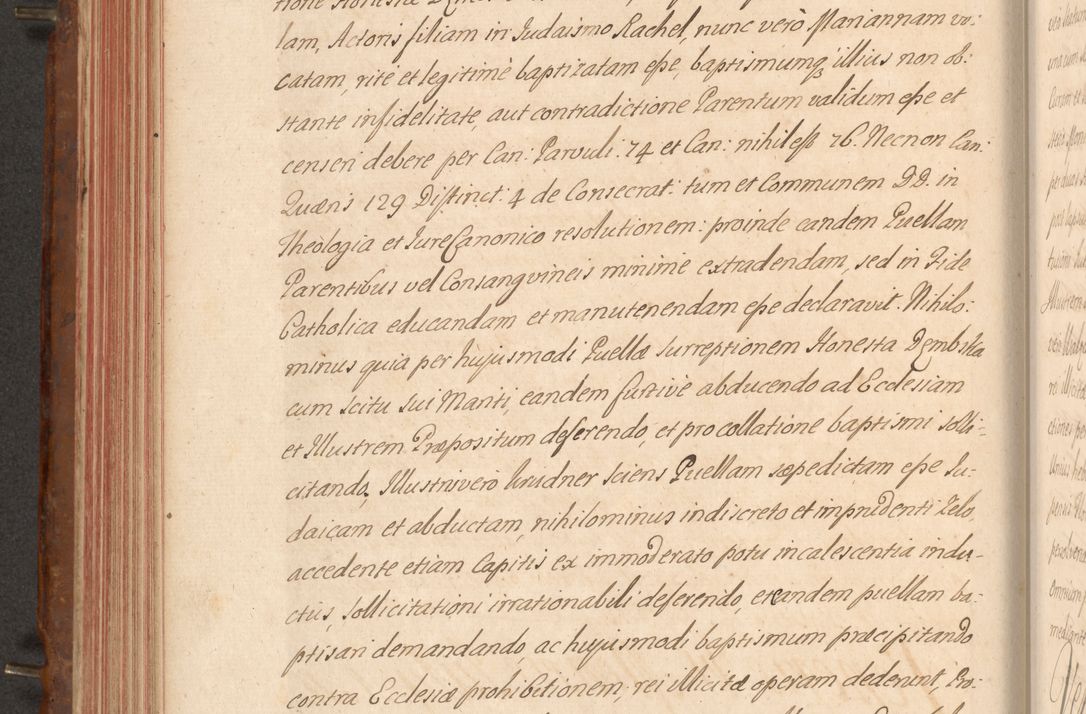 lam, Actoris filiam in Judaismo Rachel, nunc verò Mariannam vo:
catam, rite et legitimè baptizatam eſse, baptismumqꝫ illius non ob:
stante infidelitate, aut contradictione Parentum validum eſse et
censeri debere per Can: Parvuli 74 et Can: nihil eſt 76. Necnon Can:
Quæris 129 Diſtinct: 4 de Consecrat: tum et Communem DD. in
Theologia et Jure Canonico resolutionem: proinde eandem Puellam
Parentibus vel Consangvineis minimè extradendam, sed in Fide
Catholica educandam et manutenendam eſse declaravit. Nihilo:
minus quia per hujusmodi Puellæ surreptionem Honesta Dembska
cum scitu sui Mariti, eandem furtivè abducendo ad Ecclesiam
et Illustrem Præpositum deferendo, et pro collatione baptismi solli-
citando, Illustris verò Kruidner sciens Puellam sæpedictam eſse Ju:
daicam et abductam, nihilominus indiscreto et imprudenti Zelo,
accedente etiam Capitis ex immoderato potu incalescentia indu-
ctus, sollicitationi irrationabili deferendo, et eandem puellam ba-
ptisari demandando, ac hujusmodi baptismum præcipitando
contra Ecclesiæ prohibitionem, rei illicitæ operam dederunt, Pro: